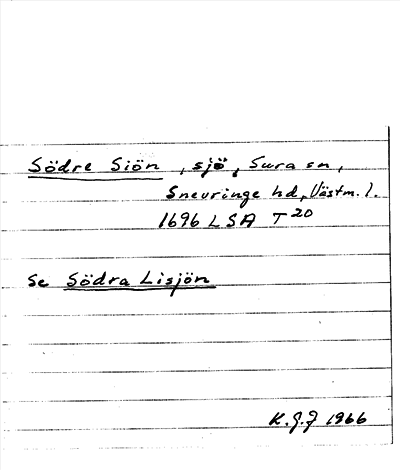 Södre Siön, sjö, Sura sn,
Snevringe hd, Västm. l.
1696 LSA T 20
Se Södra Lisjön
K.G.J 1966